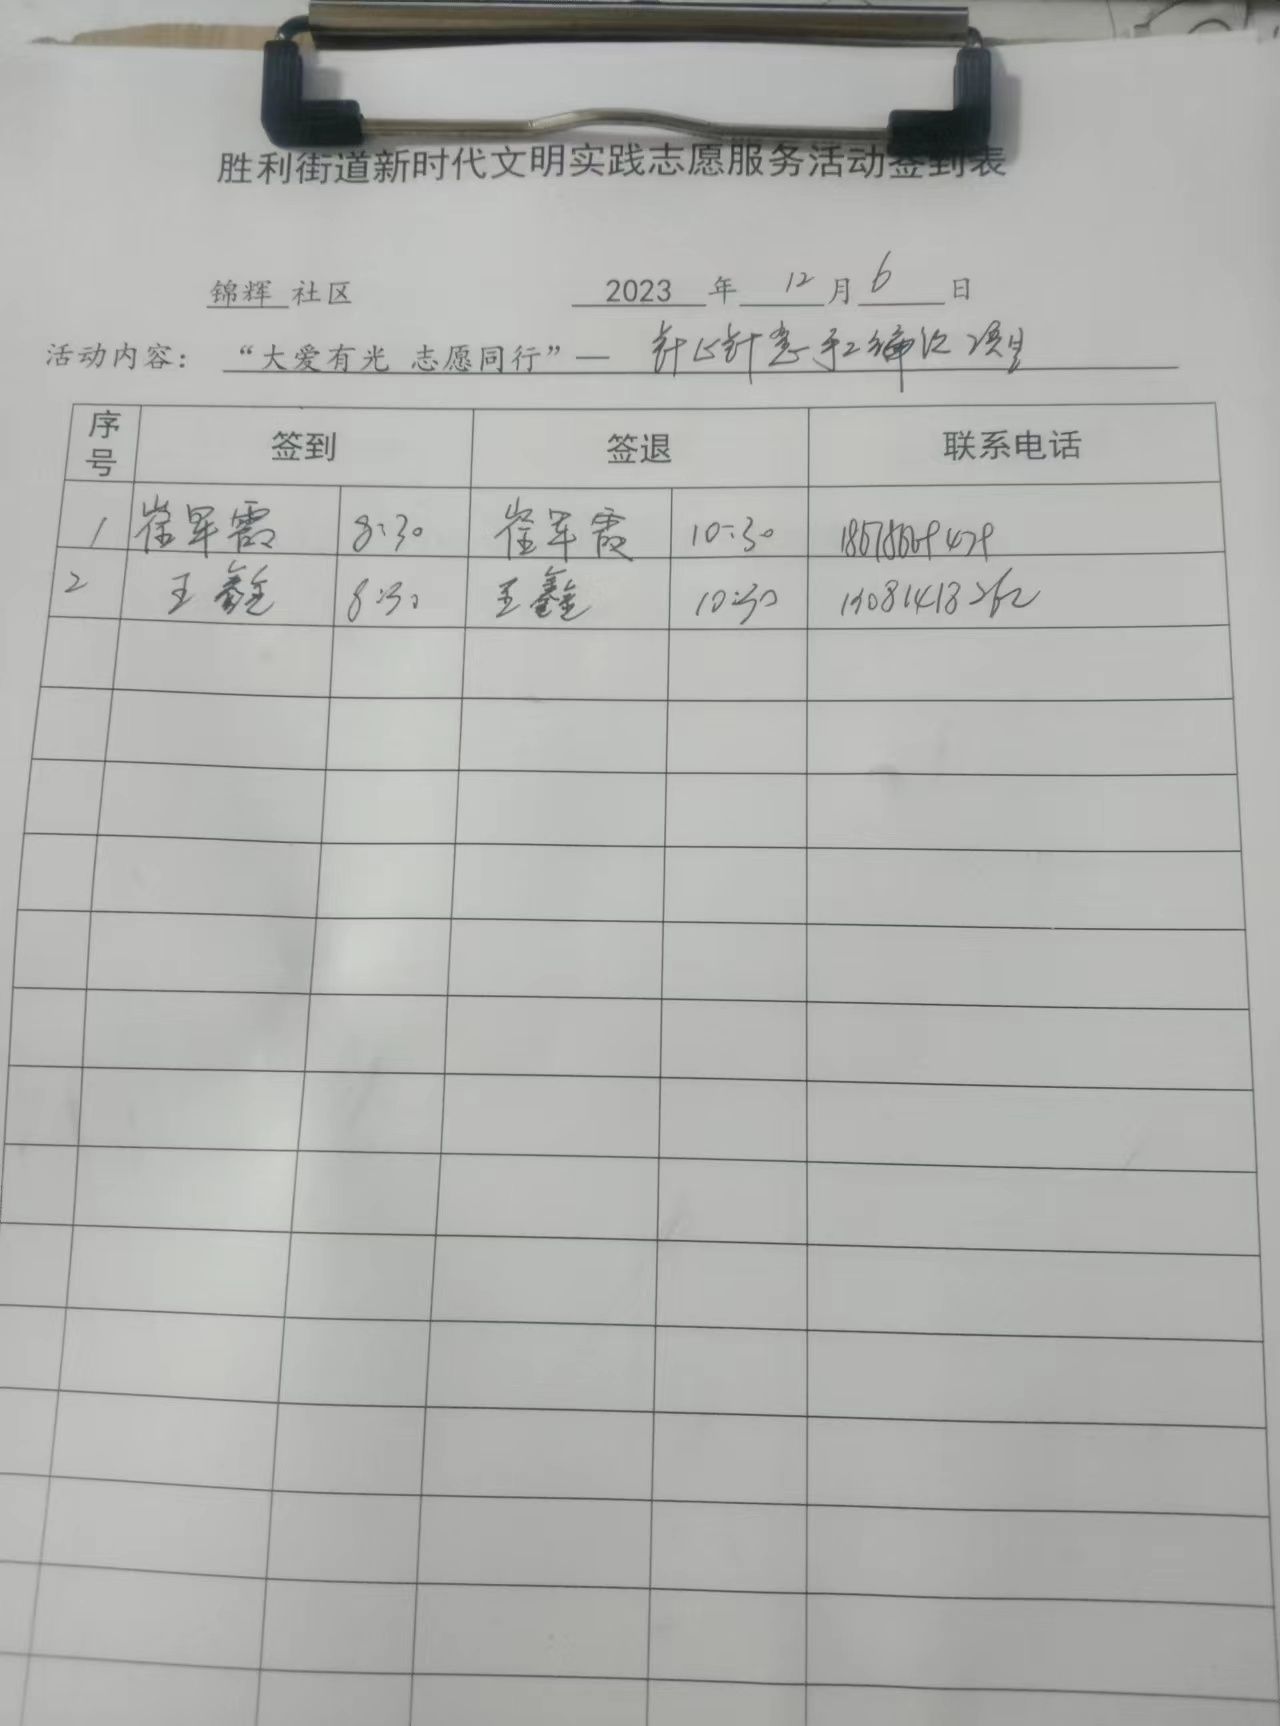 胜利街道新时代文明实践志愿服务活动签到表
锦辉 社区 2023 年 12 月 6 日
活动内容： “大爱有光 志愿同行”— 针心针意手工编织项目
序号 签到 签退 联系电话
1 崔军霞 8:30 崔军霞 10:30
2 王鑫 8:30 王鑫 10:30